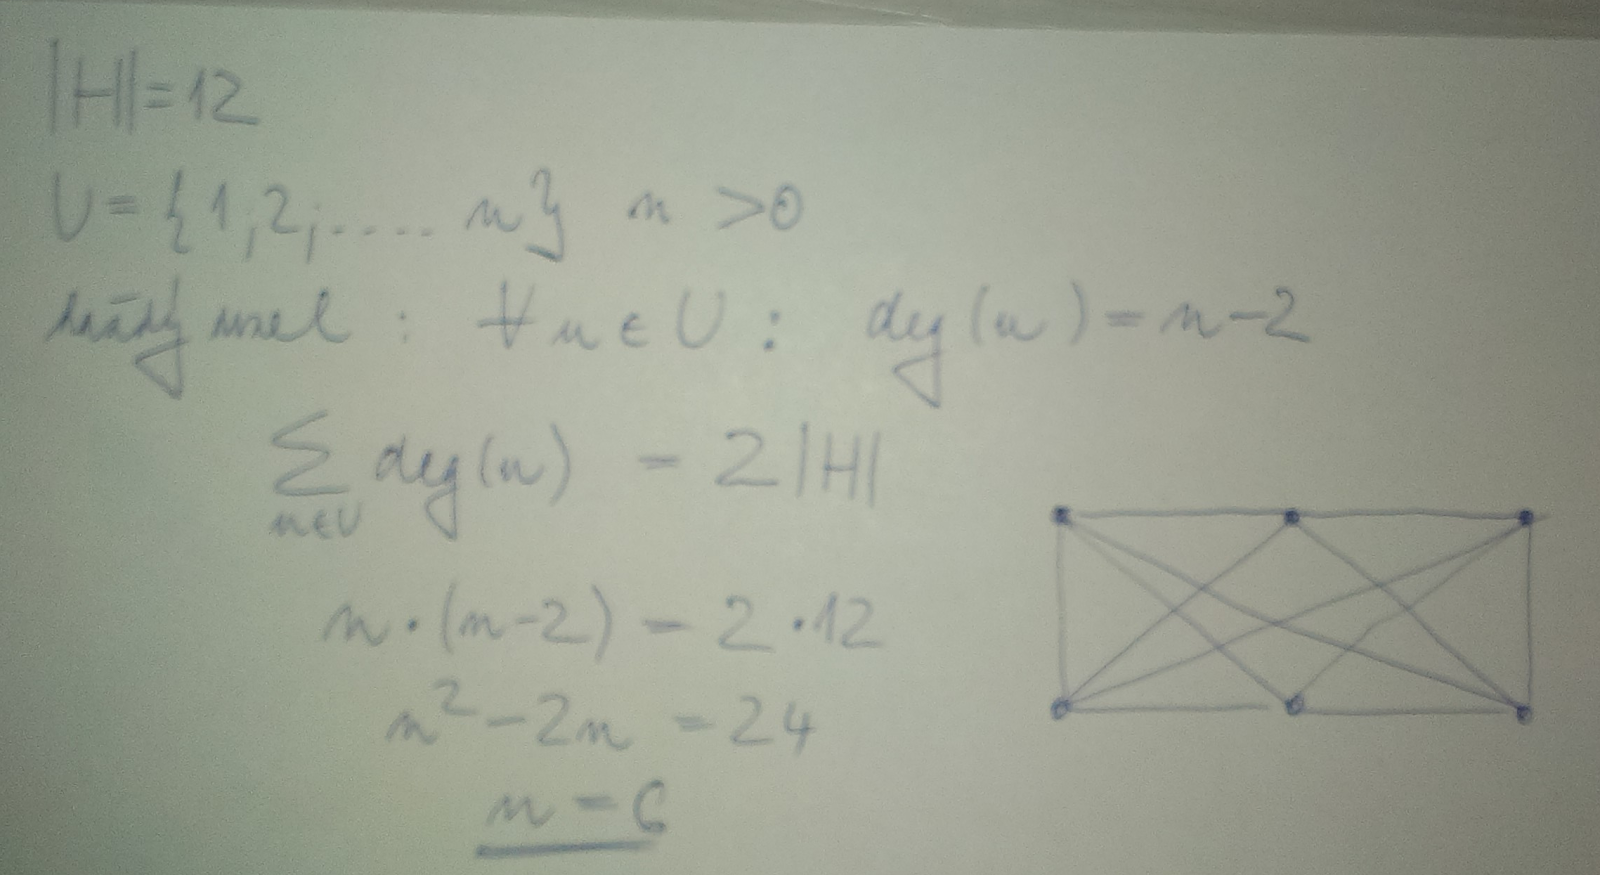 |H|=12
U = {1,2,.... n} n >0
každý uzel : ∀u∈U : deg(u) = n-2
∑ deg(u) = 2|H|
u∈U
n·(n-2) = 2·12
n²-2n = 24
n = 6